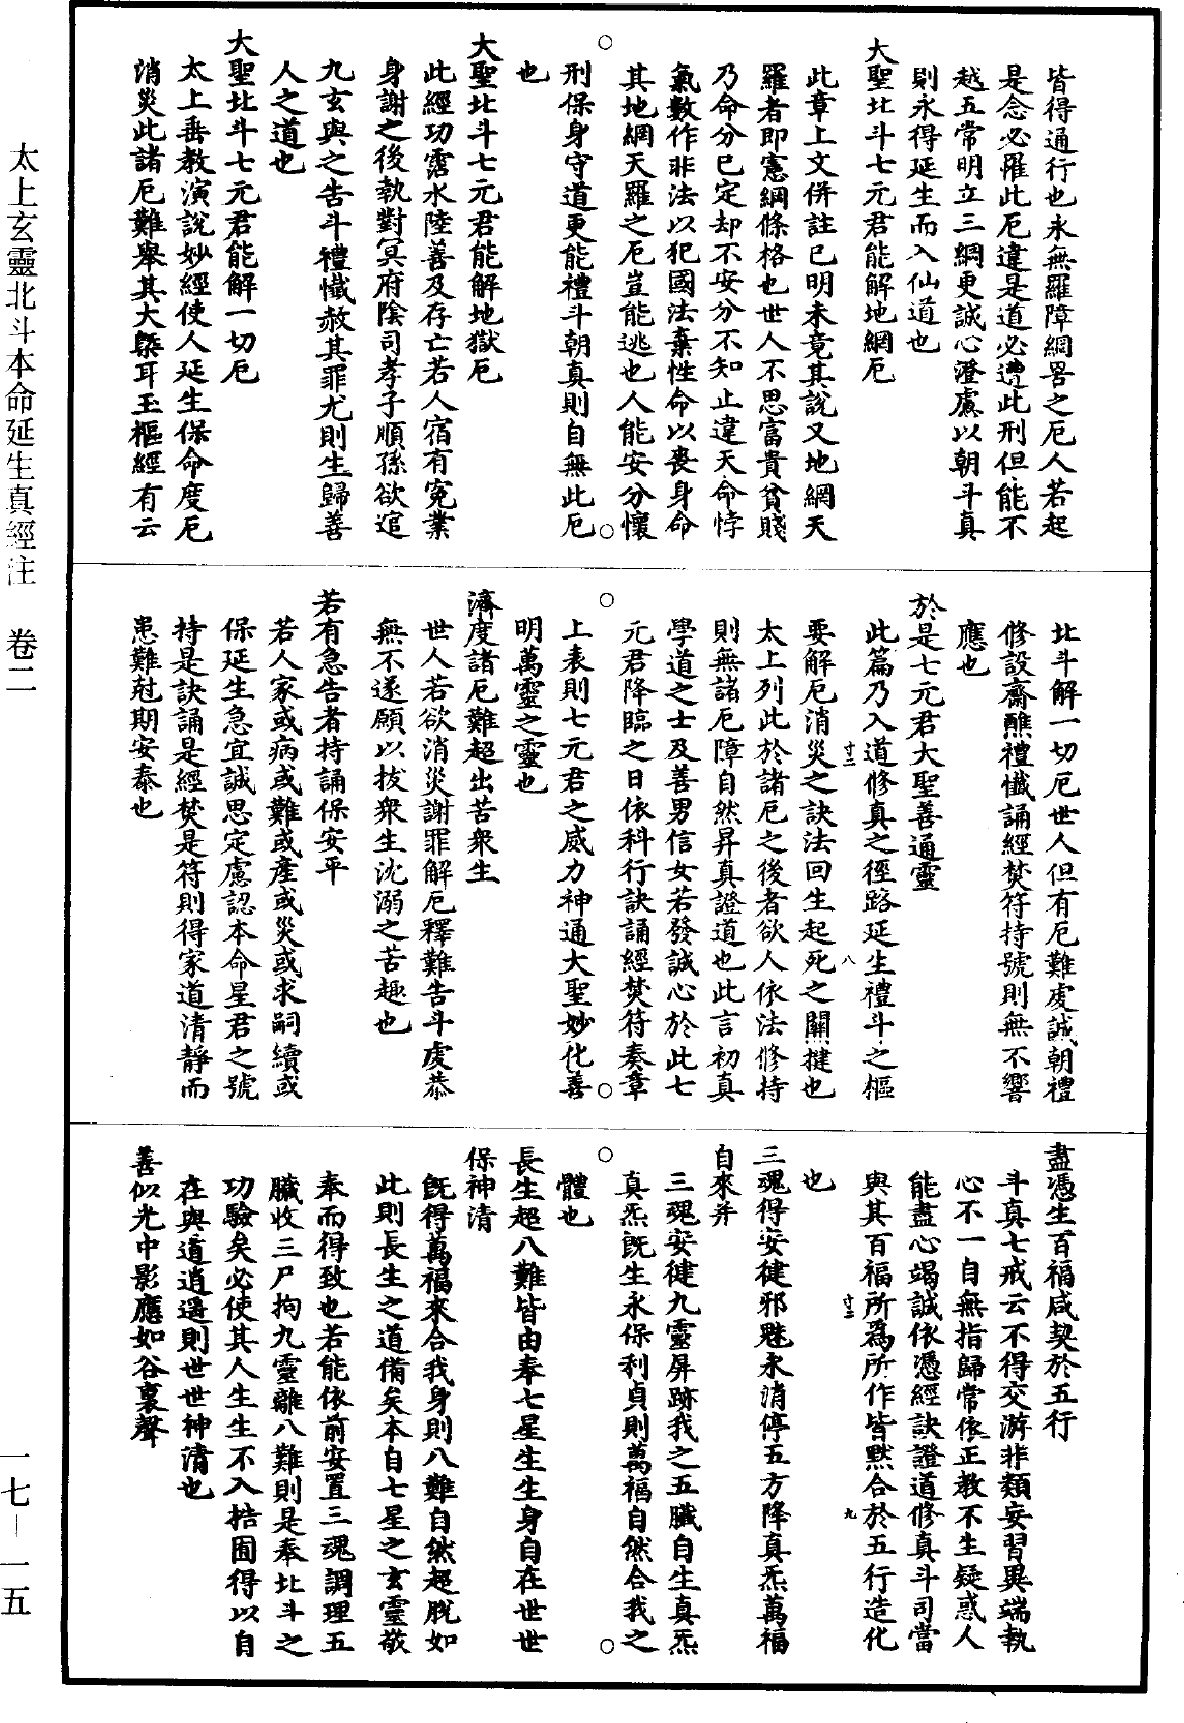 皆得通行也永無羅障網罟之厄人若起
是念必罹此厄違是道必遭此刑但能不
越五常明立三綱更誠心澄慮以朝斗真
則永得延生而入仙道也
大聖北斗七元君能解地網厄
此章上文併註已明未竟其說又地網天
羅者即憲網條格也世人不思富貴貧賤
乃命分已定却不安分不知止違天命悖
氣數作非法以犯國法棄性命以喪身命
其地網天羅之厄豈能逃也人能安分懷
刑保身守道更能禮斗朝真則自無此厄
也
大聖北斗七元君能解地獄厄
此經功霑水陸善及存亡若人宿有冤業
身謝之後執對冥府陰司孝子順孫欲追
九玄與之告斗禮懺赦其罪尤則生歸善
人之道也
大聖北斗七元君能解一切厄
太上垂教演說妙經使人延生保命度厄
消災此諸厄難舉其大槩耳玉樞經有云
北斗解一切厄世人但有厄難虔誠朝禮
修設齋醮禮懺誦經焚符持號則無不響
應也
於是七元君大聖善通靈
此篇乃入道修真之徑路延生禮斗之樞
要解厄消災之訣法回生起死之關揵也
太上列此於諸厄之後者欲人依法修持
則無諸厄障自然昇真證道也此言初真
學道之士及善男信女若發誠心於此七
元君降臨之日依科行訣誦經焚符奏章
上表則七元君之威力神通大聖妙化善
明萬靈之靈也
濟度諸厄難超出苦衆生
世人若欲消災謝罪解厄釋難告斗虔恭
無不遂願以拔衆生沈溺之苦趣也
若有急告者持誦保安平
若人家或病或難或產或災或求嗣續或
保延生急宜誠思定慮認本命星君之號
持是訣誦是經焚是符則得家道清靜而
患難尅期安泰也
盡憑生百福咸契於五行
斗真七戒云不得交游非類妄習異端執
心不一自無指歸常依正教不生疑惑人
能盡心竭誠依憑經訣證道修真斗司當
與其百福所為所作皆默合於五行造化
也
三魂得安健邪魅永消停五方降真炁萬福
自來并
三魂安健九靈屏跡我之五臟自生真炁
真炁既生永保利貞則萬福自然合我之
體也
長生超八難皆由奉七星生生身自在世世
保神清
既得萬福來合我身則八難自然超脫如
此則長生之道備矣本自七星之玄靈敬
奉而得致也若能依前安置三魂調理五
臟收三尸拘九靈離八難則是奉北斗之
功驗矣必使其人生生不入牿囿得以自
在與道逍遥則世世神清也
善似光中影應如谷裏聲
太上玄靈北斗本命延生真經注　卷二
一七—一五